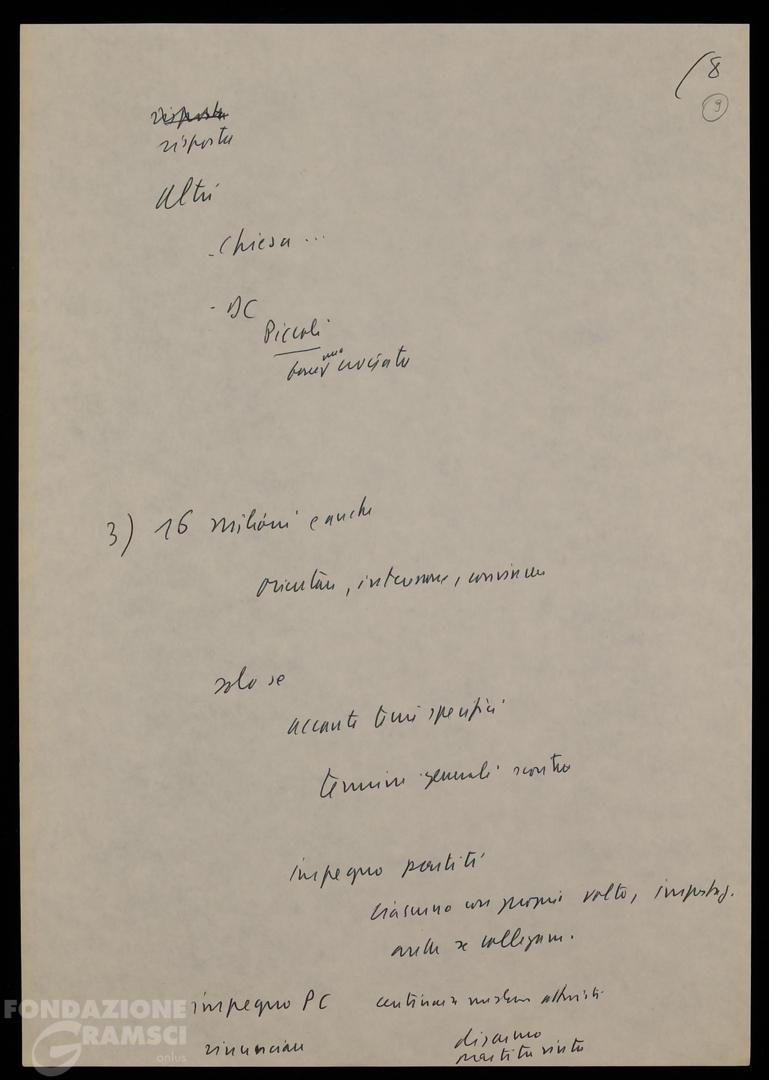 (8
9
risposta
risposta
Altri
- Chiesa ...
- DC
Piccoli
crociata
3) 16 milioni e anche
orientare, intervenire, convincere
solo se
accanto temi specifici
termini generali scontro
impegno partiti
ciascuno con proprio volto, impostaz.
anche se collegam.
impegno PC centinaia
rinunciare
discorso
partita vinta
FONDAZIONE
GRAMSCI
onlus